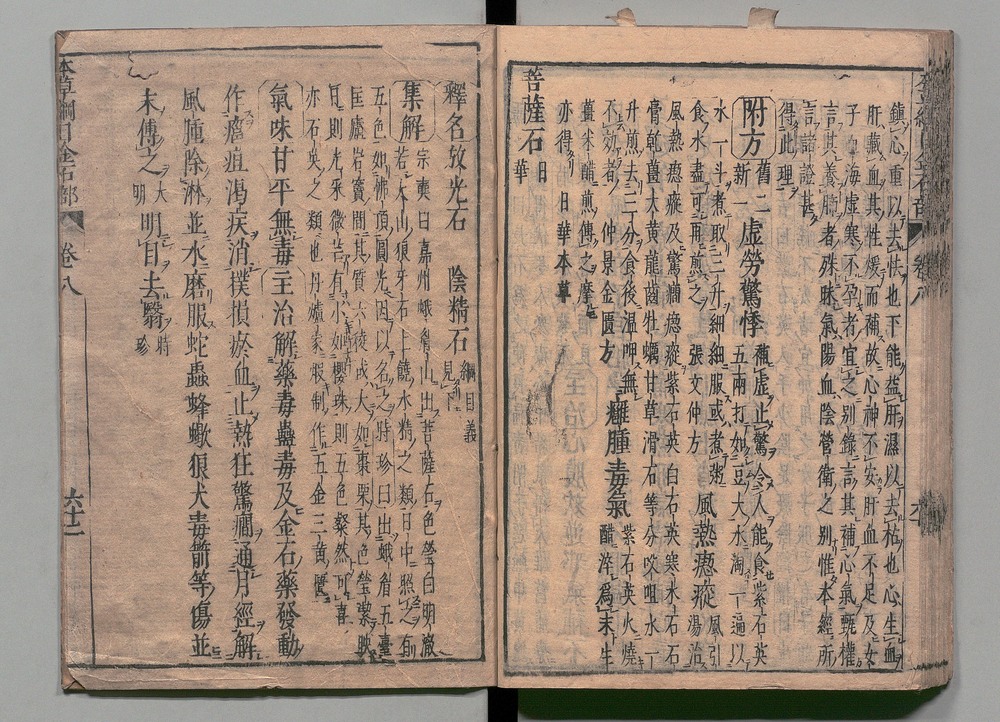 鎮心重以去怯也下能益肝濕以去枯也心生血
肝藏血其性緩而補故心神不安肝血不足及女
子血海虛寒不孕者宜之別錄言其補心氣甄權
言其養肺者殊昧氣陽血陰營衛之別惟本經所
言諸證甚
得此理
附方 舊二新一 虛勞驚悸 補虛止驚令人能食紫石英
五兩打如豆大水淘一遍以
水一斗煮取三升細細服或煮粥
食水盡可再煎之 張文仲方 風熱瘛瘲 風引湯治
風熱瘛瘲及驚癇瘛瘲紫石英白石英寒水石石
膏乾薑大黃龍齒牡蠣甘草滑石等分㕮咀水一
升煎去三分食後溫呷無
不效者 仲景金匱方 癰腫毒氣 紫石英火燒
醋淬爲末生
薑米醋煎傅之摩
亦得 日華本草
菩薩石 日華
釋名 放光石 陰精石 綱目義見下
集解 宗奭曰嘉州峨眉山出菩薩石色瑩白明澈
若太山狼牙石上饒水精之類日中照之有
五色如佛頂圓光因以名之時珍曰出峨眉五臺
匡廬巖竇間其質六稜或大如棗栗其色瑩潔映
日則光采微芒有小如櫻珠則五色粲然可喜
亦石英之類也丹爐家煆制作五金三黃匱
氣味甘平無毒主治解藥毒蠱毒及金石藥發動
作癰疽渴疾消撲損瘀血止熱狂驚癇通月經解
風腫除淋並水磨服蛇蟲蜂蠍狼犬毒箭等傷並
末傅之 大明 明目去翳 時珍
本草綱目金石部 卷八 六十二